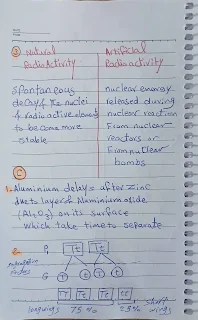 ③ Natural Radioactivity
Artificial Radioactivity
spontaneous
decay of the nuclei
of radioactive element
to become more
stable
nuclear energy
released during
nuclear reaction
From nuclear
reactors or
From nuclear
bombs
C
1- Aluminium delays after Zinc
due to layer of Aluminium oxide
(Al2O3) on its surface
which take time to separate
2-
P1 Tt Tt
G T t T t
TT Tt Tt tt
long wings 75% 25% short
wings